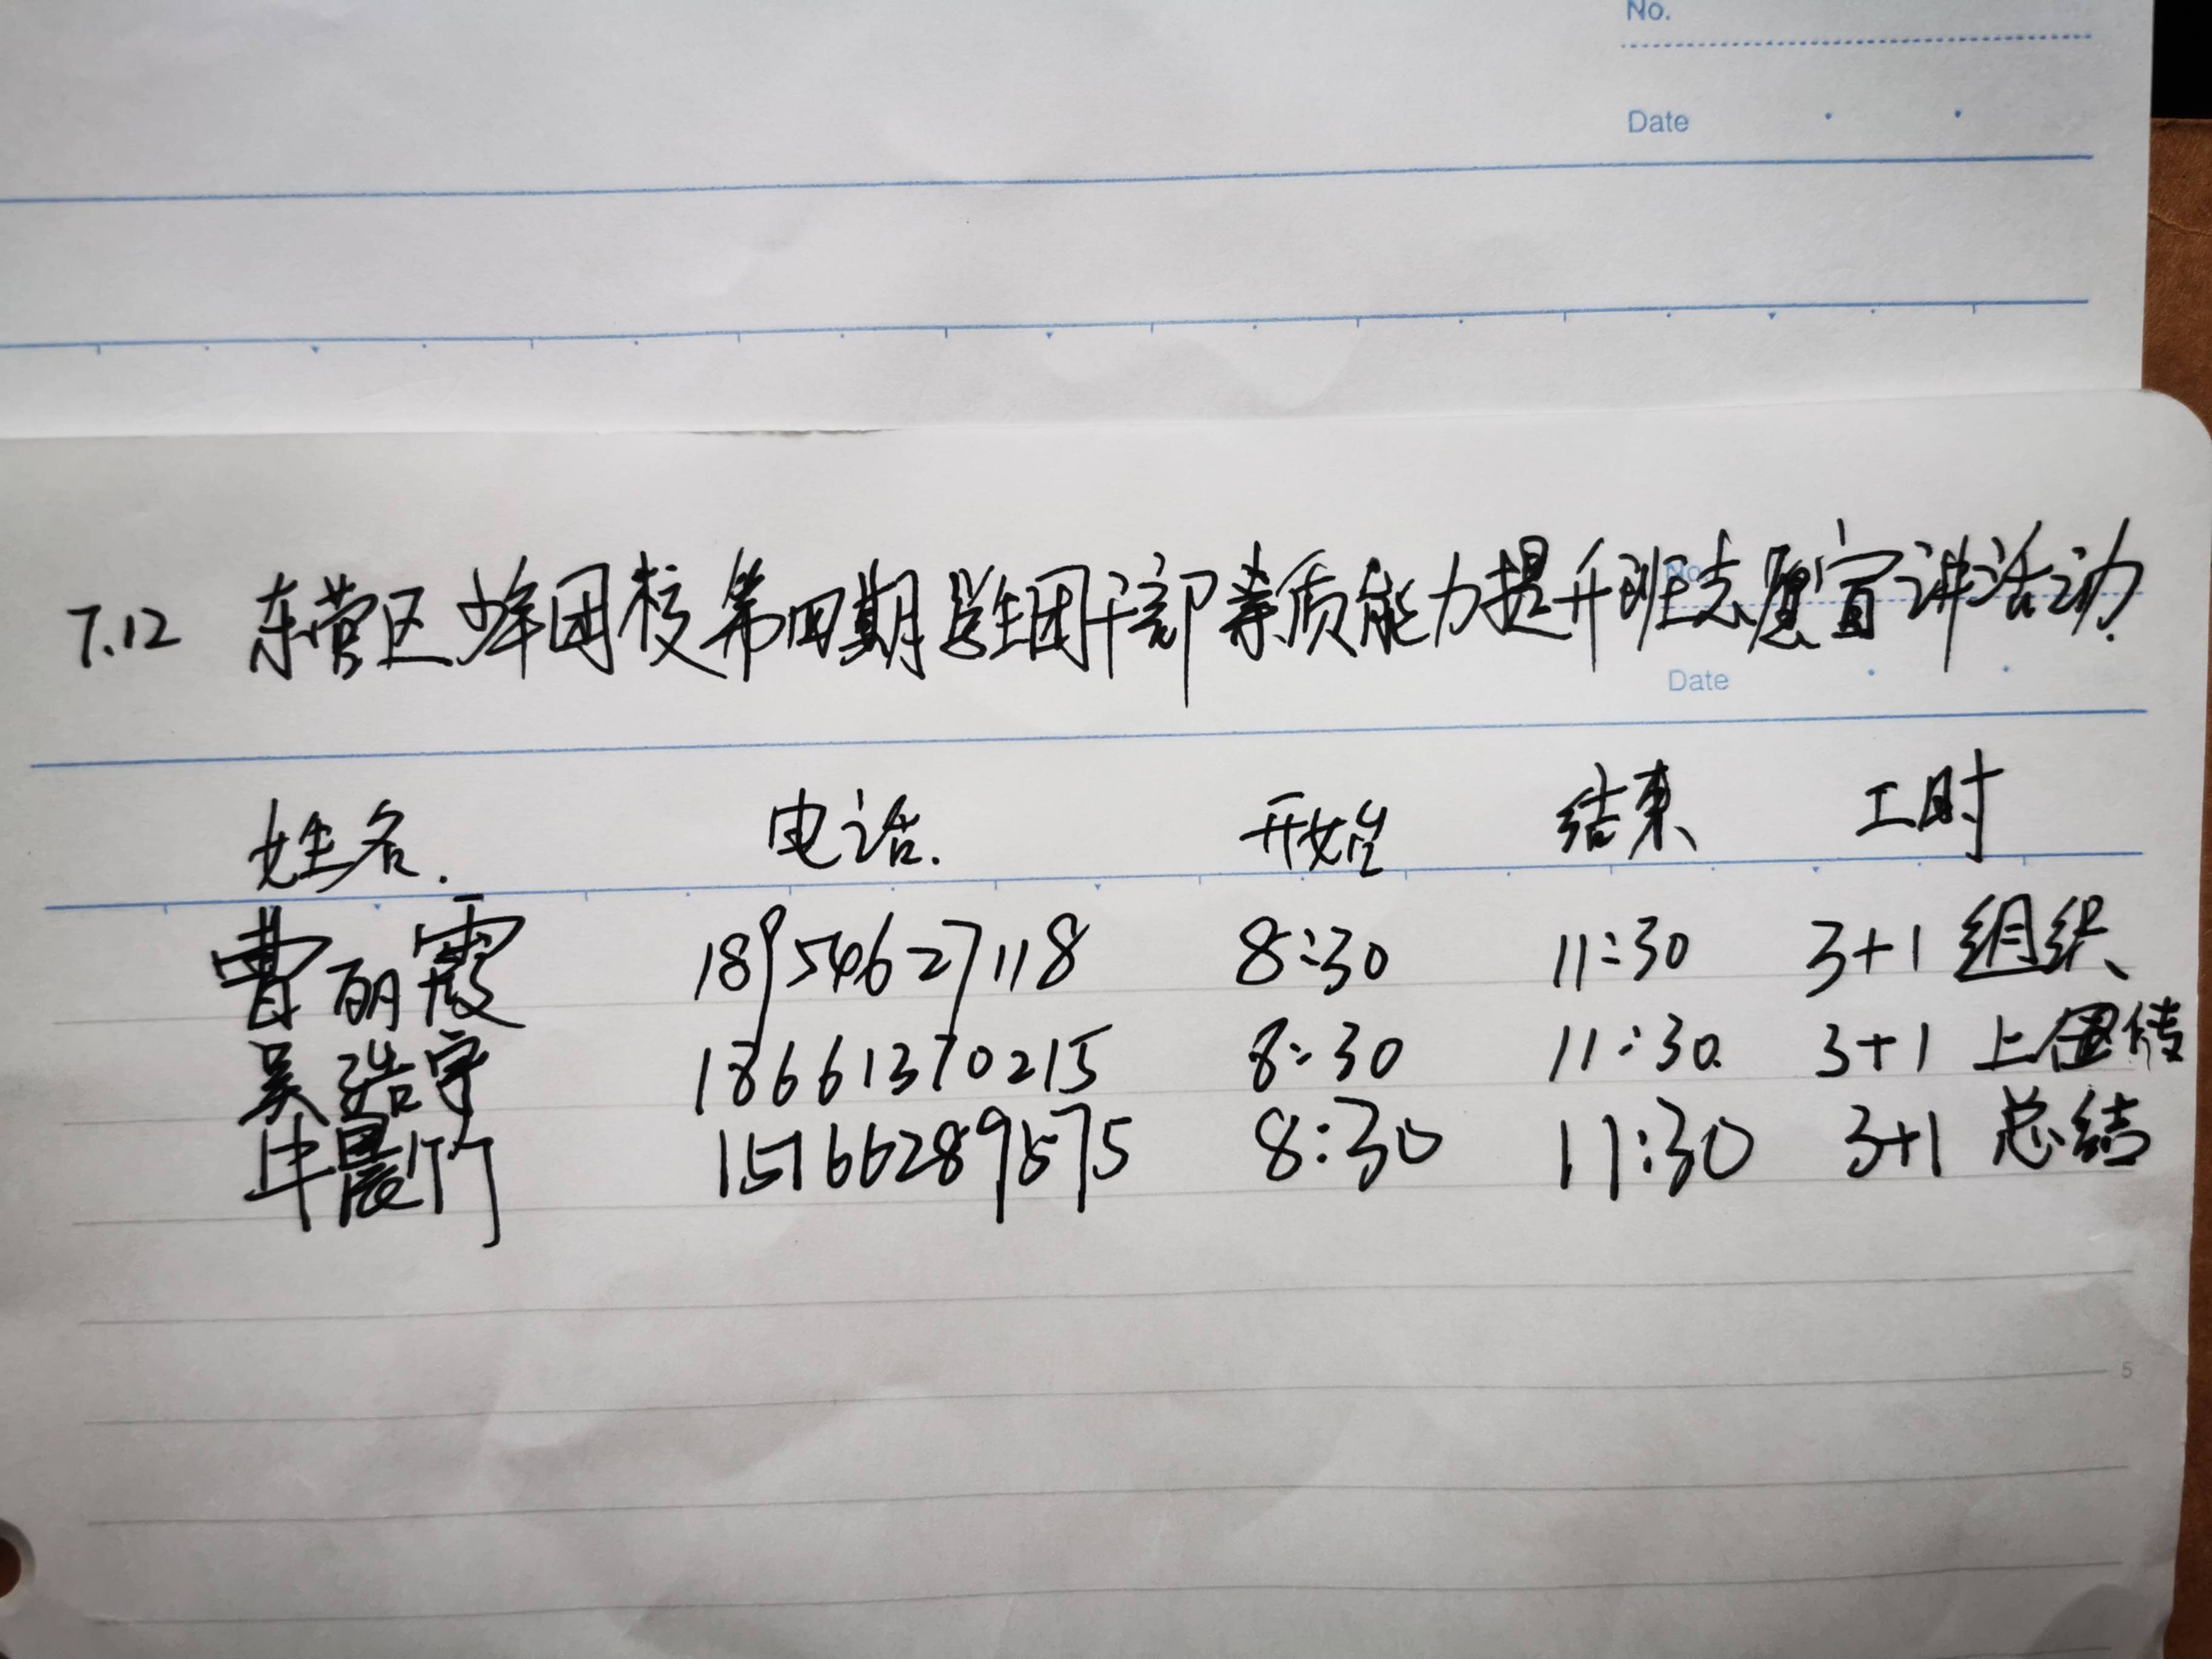 No.
Date
No.
7.12 东营区少年团校第四期学生团干部素质能力提升班志愿宣讲活动.
Date
姓名. 电话. 开始 结束 工时
曹丽霞 18954627118 8:30 11:30 3+1 组织
吴浩宇 18661370215 8:30 11:30. 3+1 上传
牛晨竹 15766289575 8:30 11:30 3+1 总结
5